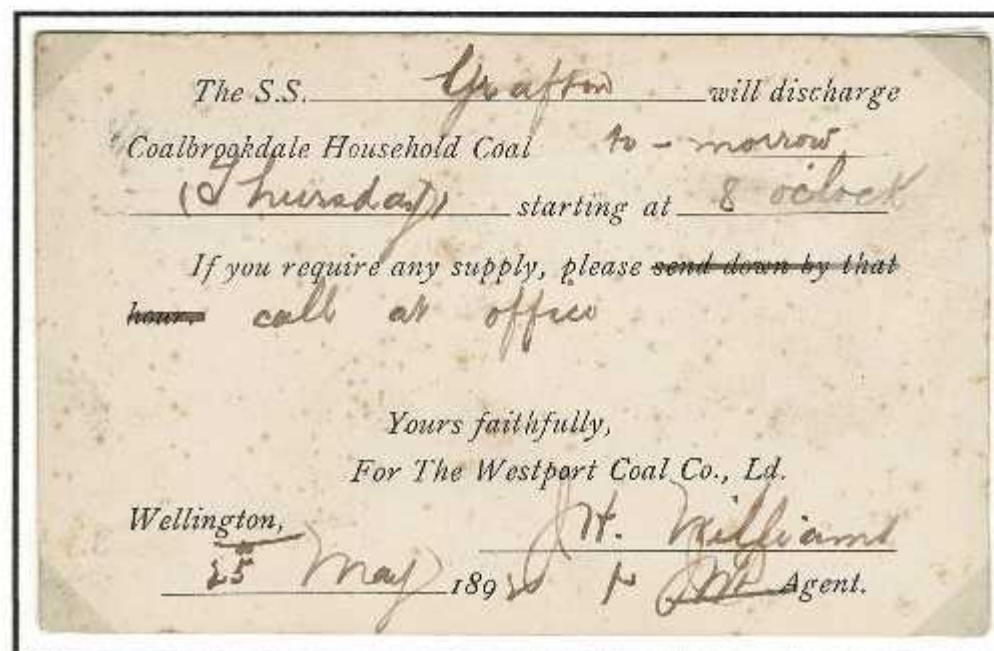 The S.S. Grafton will discharge
Coalbrookdale Household Coal to-morrow
(Thursday) starting at 8 oclock
If you require any supply, please send down by that
hour. call at office
Yours faithfully,
For The Westport Coal Co., Ld.
Wellington,
J H. Williams
25 May 189 p Agent.